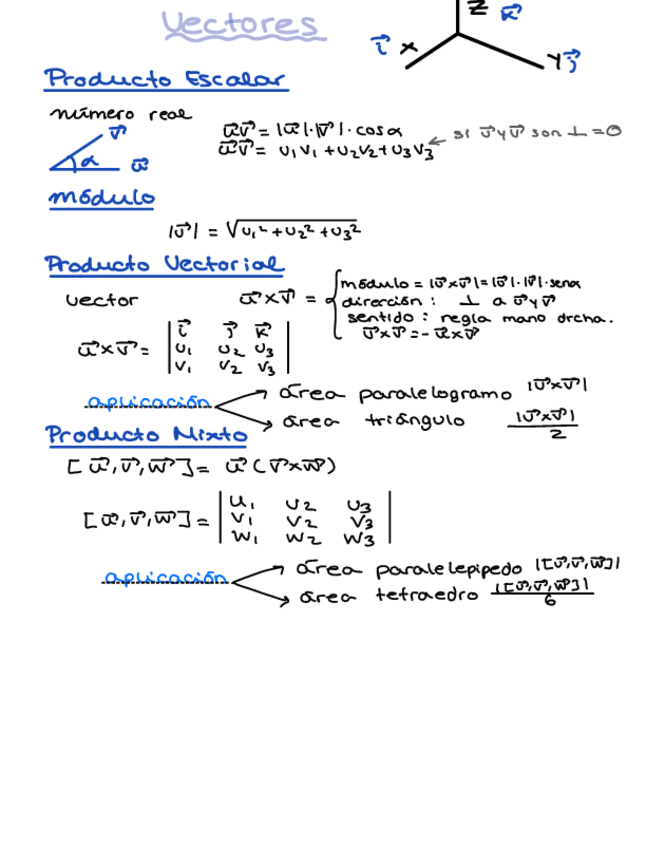 Vectores
Z k⃗
i⃗ x
y j⃗
Producto Escalar
número real
v⃗
α u⃗
u⃗v⃗ = |u⃗|·|v⃗|·cosα
u⃗v⃗ = u₁v₁ + u₂v₂ + u₃v₃ ← si u⃗ y v⃗ son ⊥ = 0
módulo
|u⃗| = √u₁² + u₂² + u₃²
Producto Vectorial
vector u⃗ x v⃗ =
módulo = |u⃗ x v⃗| = |u⃗|·|v⃗|·senα
dirección : ⊥ a u⃗ y v⃗
sentido : regla mano drcha.
v⃗ x v⃗ = - u⃗ x v⃗
u⃗ x v⃗ =
i⃗ j⃗ k⃗
u₁ u₂ u₃
v₁ v₂ v₃
aplicación
área paralelogramo |u⃗ x v⃗|
área triángulo |u⃗ x v⃗| / 2
Producto Mixto
[u⃗, v⃗, w⃗] = u⃗ (v⃗ x w⃗)
[u⃗, v⃗, w⃗] =
u₁ u₂ u₃
v₁ v₂ v₃
w₁ w₂ w₃
aplicación
área paralelepipedo |[u⃗, v⃗, w⃗]|
área tetraedro |[u⃗, v⃗, w⃗]| / 6